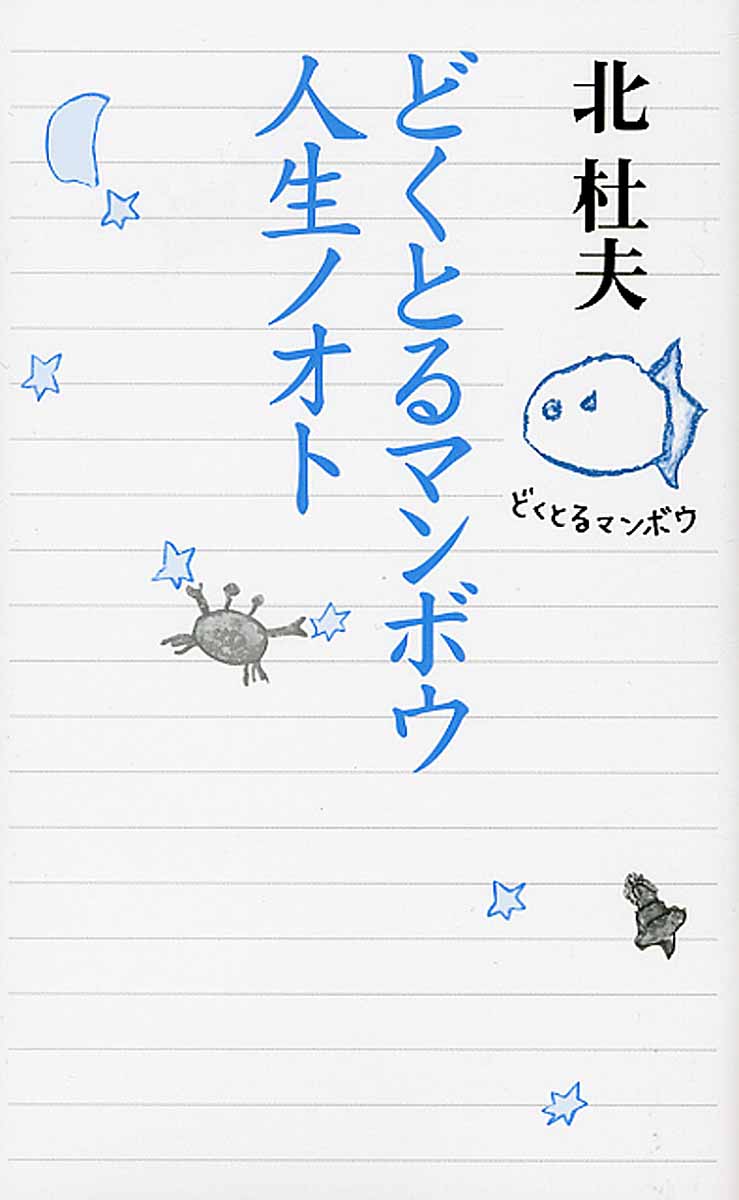 北 杜夫
どくとるマンボウ
どくとるマンボウ
人生ノオト